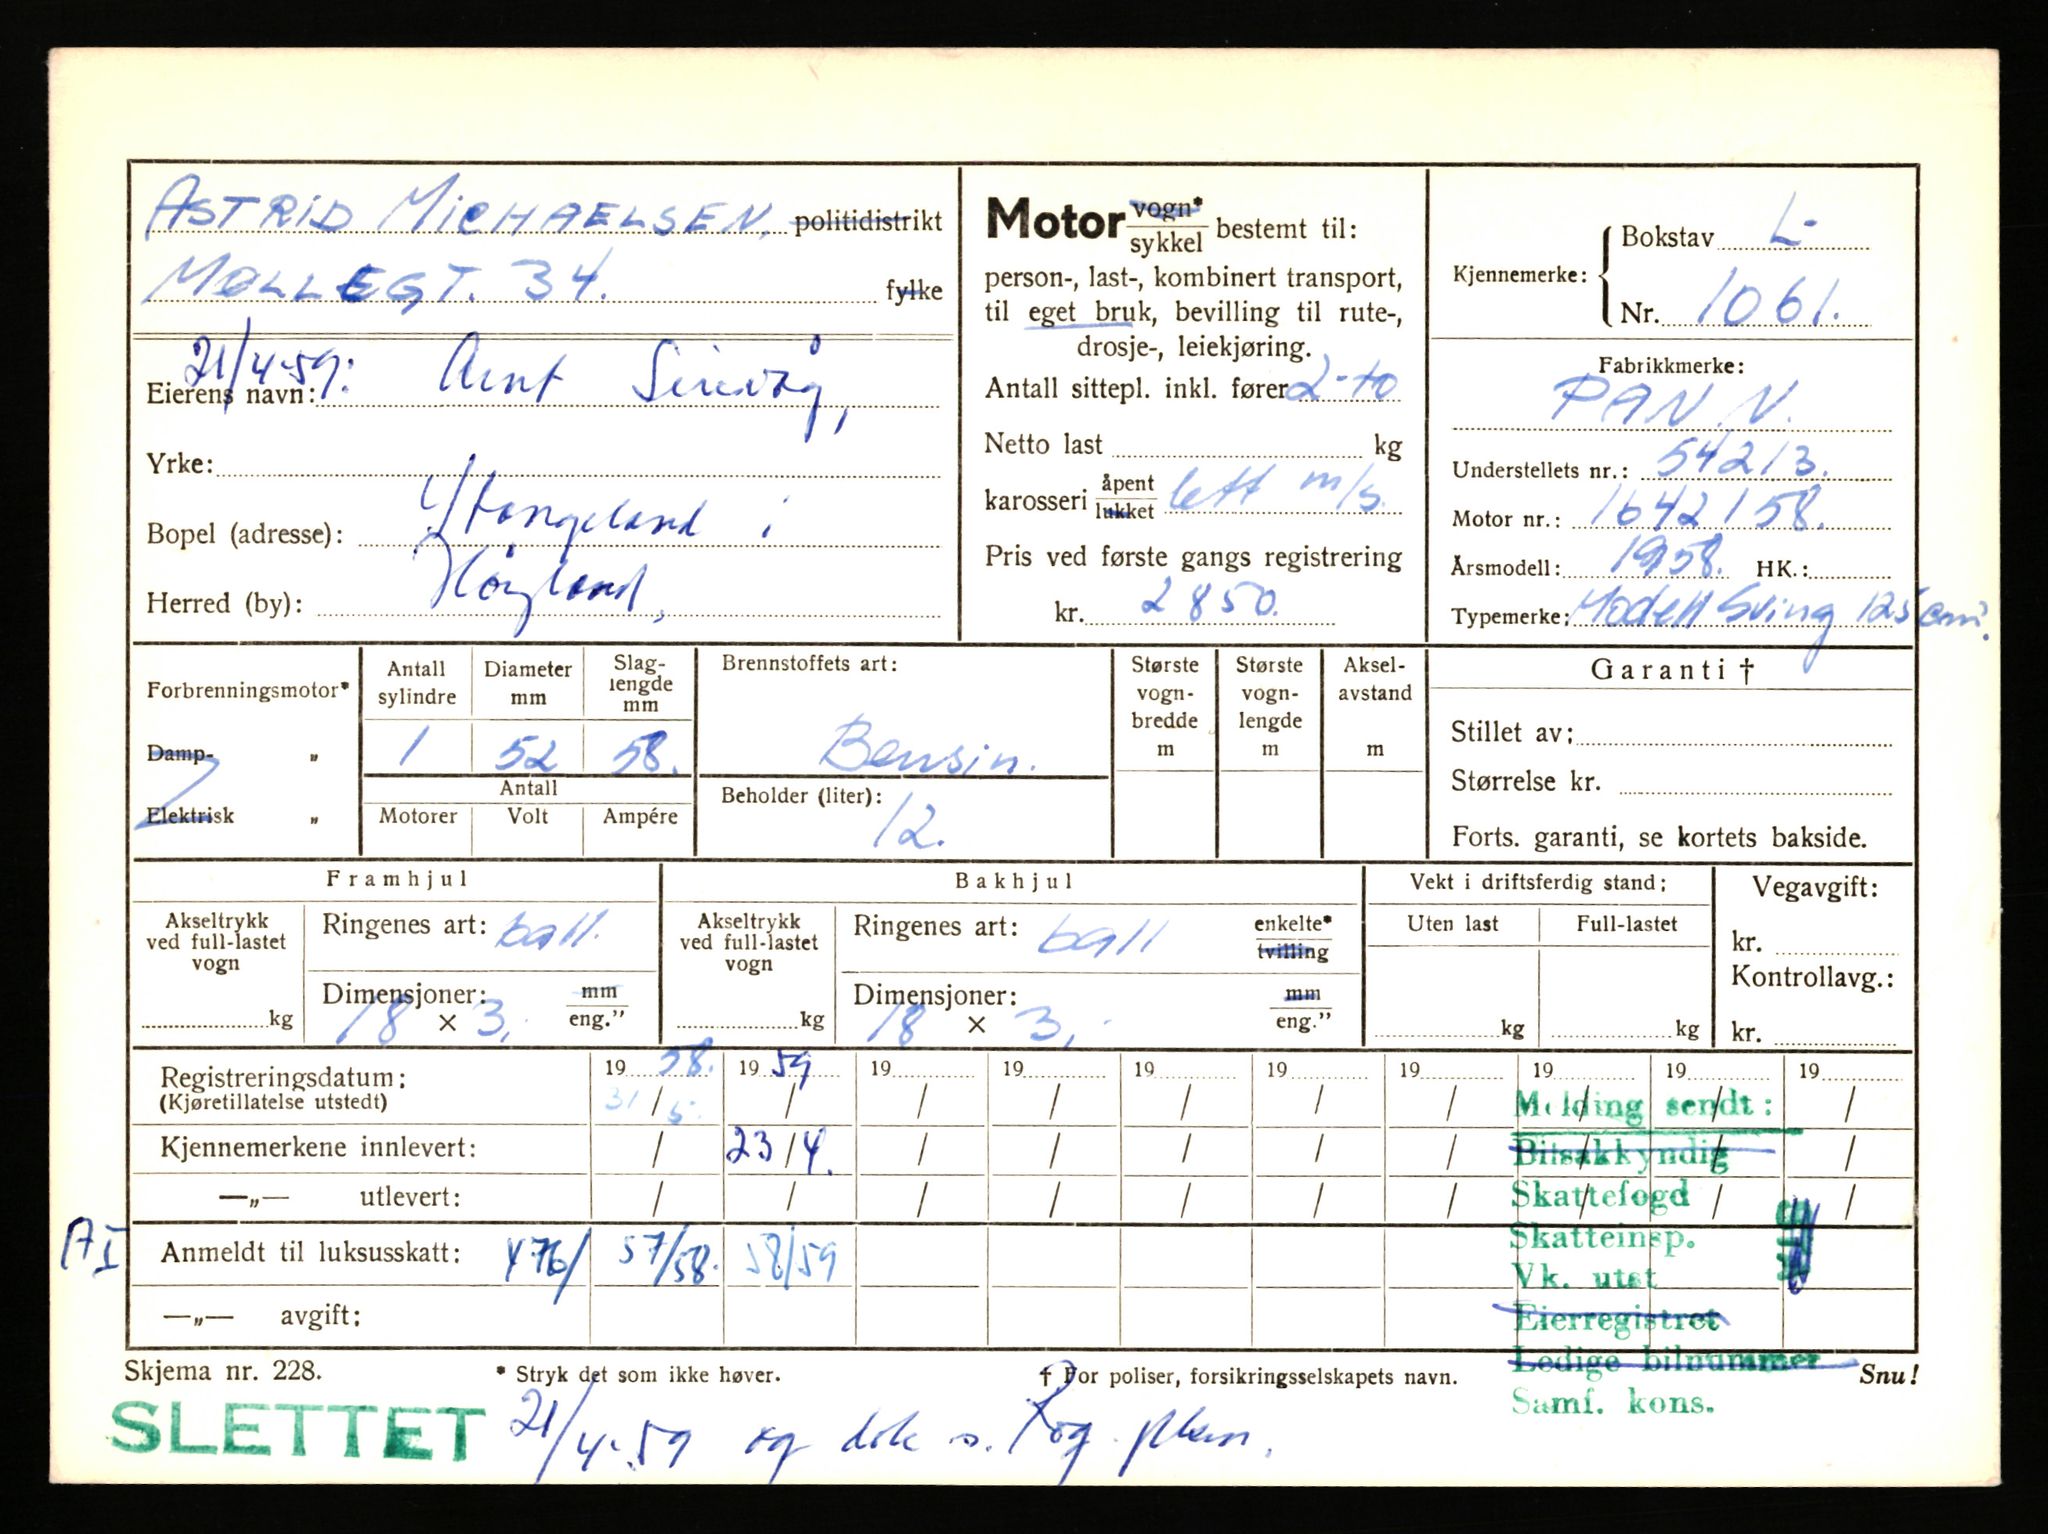 ASTRID MICHAELSEN, politidistrikt
MØLLEGT. 34. fylke
21/4-59: Arnt Sirevåg,
Eierens navn:
Yrke:
Bopel (adresse): Stangeland i
Herred (by): Høyland,
Motor vogn*
sykkel bestemt til:
person-, last-, kombinert transport,
til eget bruk, bevilling til rute-,
drosje-, leiekjøring.
Antall sittepl. inkl. fører 2-to
Netto last kg
karosseri åpent lukket lett m/s.
Pris ved første gangs registrering
kr. 2850.
Kjennemerke: Bokstav L-
Nr. 1061.
Fabrikkmerke:
PAN N.
Understellets nr.: 54213.
Motor nr.: 1642158.
Årsmodell: 1958. HK.:
Typemerke: Modell Sving 125 cm³.
Forbrenningsmotor*
Damp- „
Elektrisk „
Antall sylindre
1
Diameter mm
52
Slag-
lengde
mm
58.
Antall
Motorer Volt Ampére
Brennstoffets art:
Bensin.
Beholder (liter):
12.
Største
vogn-
bredde
m
Største
vogn-
lengde
m
Aksel-
avstand
m
Garanti †
Stillet av:
Størrelse kr.
Forts. garanti, se kortets bakside.
Framhjul
Akseltrykk
ved full-lastet
vogn
kg
Ringenes art: ball.
Dimensjoner: mm
18 × 3,- eng.”
Bakhjul
Akseltrykk
ved full-lastet
vogn
kg
Ringenes art: ball enkelte*
tvilling
Dimensjoner: mm
18 × 3,- eng.”
Vekt i driftsferdig stand:
Uten last Full-lastet
kg kg
Vegavgift:
kr.
Kontrollavg.:
kr.
Registreringsdatum: 19 58. 19 59 19 19 19 19 19 19 19 19
(Kjøretillatelse utstedt) 31/5. / / / / / / / / /
Kjennemerkene innlevert: / 23/4. / / / / / / / /
—„— utlevert: / / / / / / / / / /
AI Anmeldt til luksusskatt: 476/ 57/58. 58/59
—„— avgift:
Melding sendt:
Bilsakkyndig
Skattefogd
Skatteinsp.
Vk. utst
Eierregistret
Ledige bilnummer
Samf. kons.
Skjema nr. 228. * Stryk det som ikke høver. † For poliser, forsikringsselskapets navn. Snu!
SLETTET 21/4-59 og dok s. Rog.